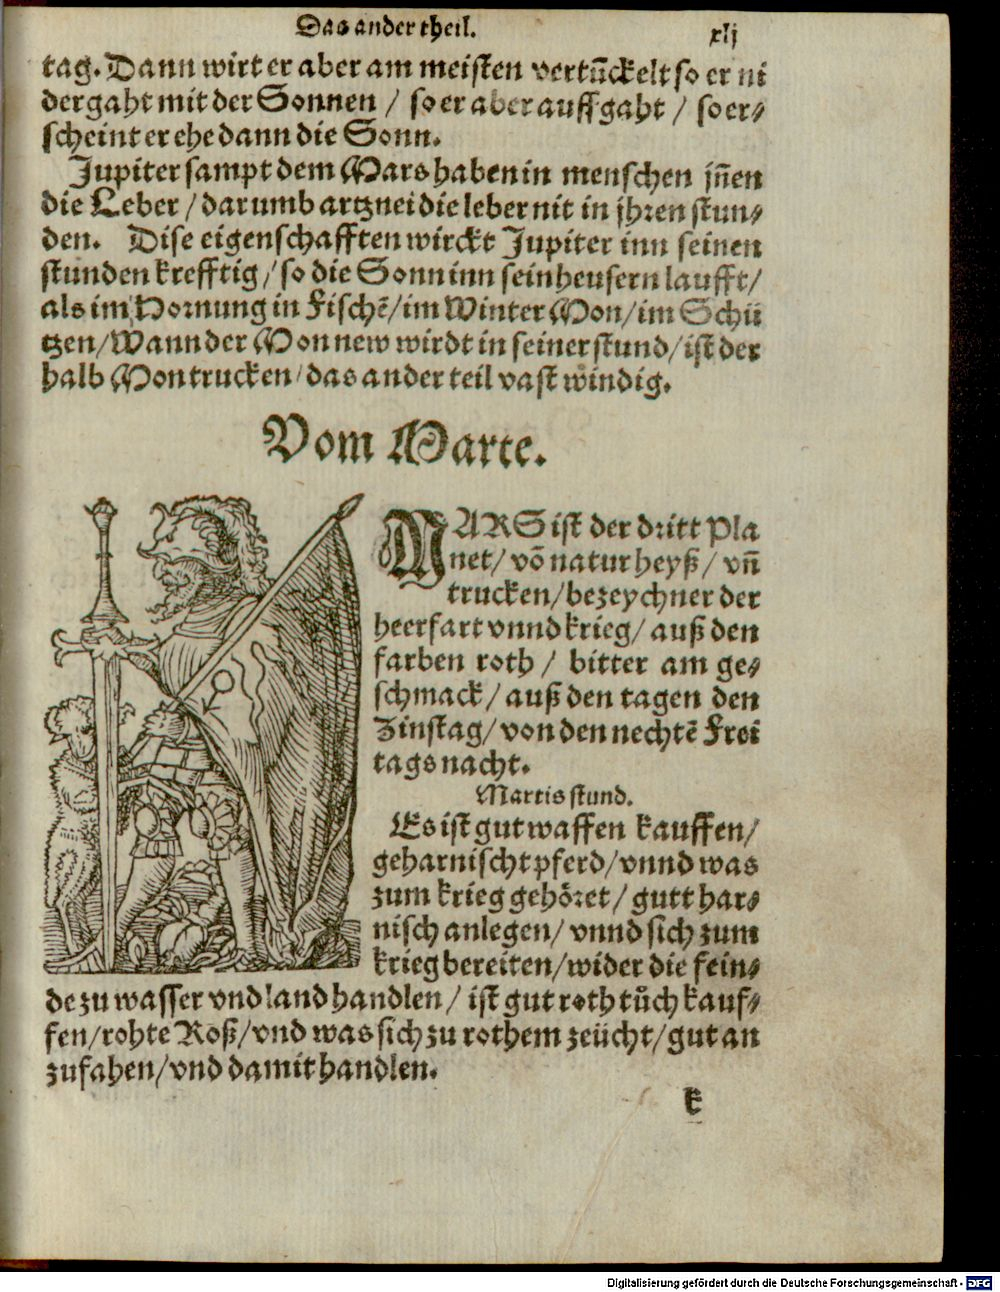 Das ander theil. xlij
tag. Dann wirt er aber am meisten vertũckelt so er ni
dergaht mit der Sonnen / so er aber auffgaht / so er⸗
scheint er ehe dann die Sonn.
Jupiter sampt dem Mars haben in menschen jñen
die Leber / darumb artznei die leber nit in jhren stun⸗
den. Dise eigenschafften wirckt Jupiter inn seinen
stunden krefftig / so die Sonn inn sein heusern laufft /
als im Hornung in Fischẽ / im Winter Mon / im Schü
tzen / Wann der Mon new wirdt in seiner stund / ist der
halb Mon trucken / das ander teil vast windig.
Vom Marte.
MARS ist der dritt Pla
net / võ natur heyß / vñ
trucken / bezeychner der
heerfart vnnd krieg / auß den
farben roth / bitter am ge⸗
schmack / auß den tagen den
Zinstag / von den nechtẽ Frei
tags nacht.
Martis stund.
Es ist gut waffen kauffen /
geharnischt pferd / vnnd was
zum krieg gehöret / gutt har⸗
nisch anlegen / vnnd sich zum
krieg bereiten / wider die fein⸗
de zu wasser vnd land handlen / ist gut roth tůch kauf⸗
fen / rohte Roß / vnd was sich zu rothem zeücht / gut an
zufahen / vnd damit handlen.
k
Digitalisierung gefördert durch die Deutsche Forschungsgemeinschaft - DFG